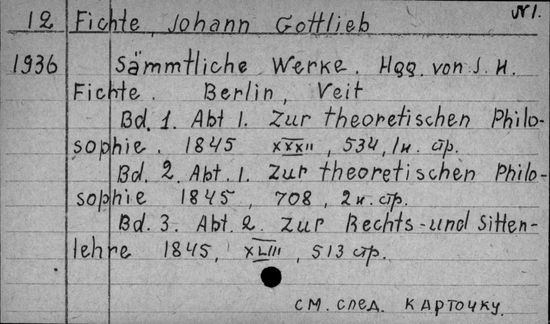 №1.
12 Fichte, Johann Gottlieb
1936 Sämmtliche Werke. Hgg. von J. H.
Fichte. Berlin, Veit
Bd. 1. Abt 1. Zur theoretischen Philo-
sophie. 1845 XXXII, 534, 1н. стр.
Bd. 2. Abt. 1. Zur theoretischen Philo-
sophie 1845, 708, 2н. стр.
Bd. 3. Abt. 2. Zur Rechts-und Sitten-
lehre 1845, XLIII, 513 стр.
см. след. карточку.